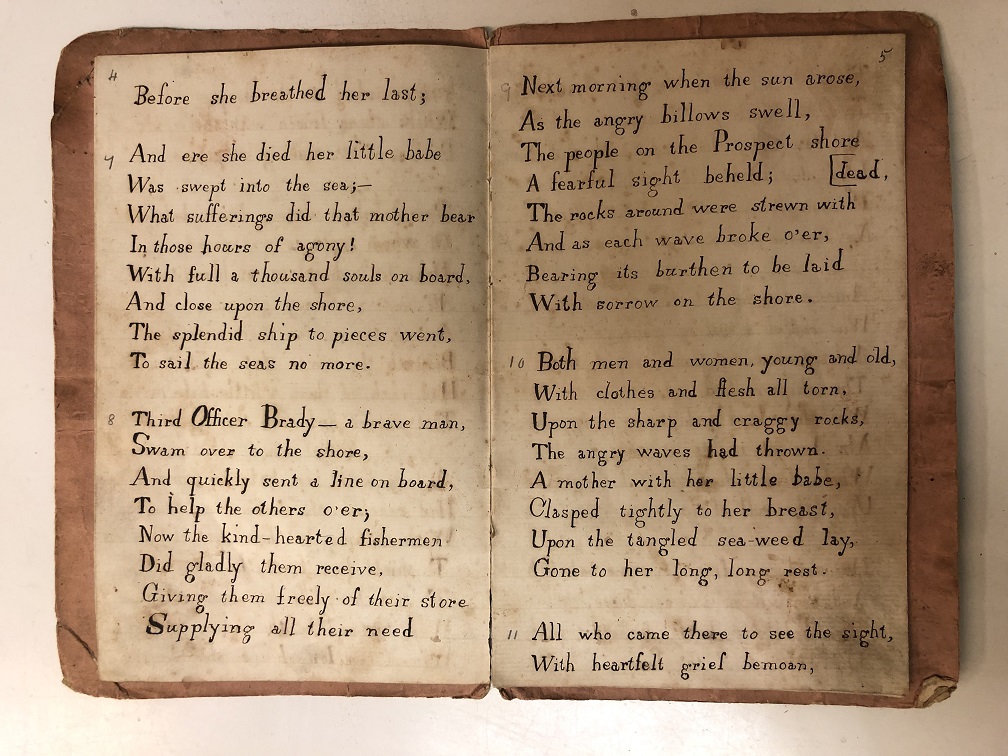 4
Before she breathed her last;
7 And ere she died her little babe
Was swept into the sea;—
What sufferings did that mother bear
In those hours of agony!
With full a thousand souls on board,
And close upon the shore,
The splendid ship to pieces went,
To sail the seas no more.
8 Third Officer Brady— a brave man,
Swam over to the shore,
And quickly sent a line on board,
To help the others o'er;
Now the kind-hearted fishermen
Did gladly them receive,
Giving them freely of their store
Supplying all their need
5
9 Next morning when the sun arose,
As the angry billows swell,
The people on the Prospect shore
A fearful sight beheld; [dead,
The rocks around were strewn with
And as each wave broke o'er,
Bearing its burthen to be laid
With sorrow on the shore.
10 Both men and women, young and old,
With clothes and flesh all torn,
Upon the sharp and craggy rocks,
The angry waves had thrown.
A mother with her little babe,
Clasped tightly to her breast,
Upon the tangled sea-weed lay,
Gone to her long, long rest.
11 All who came there to see the sight,
With heartfelt grief bemoan,